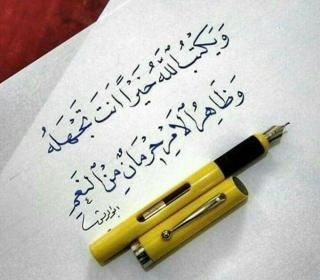 وَيَكْتُبُ اللّٰهُ خَيْرًا أَنْتَ تَجْهَلُهُ
وَظَاهِرُ الأَمْرِ حِرْمَانٌ مِنَ النِّعَمِ